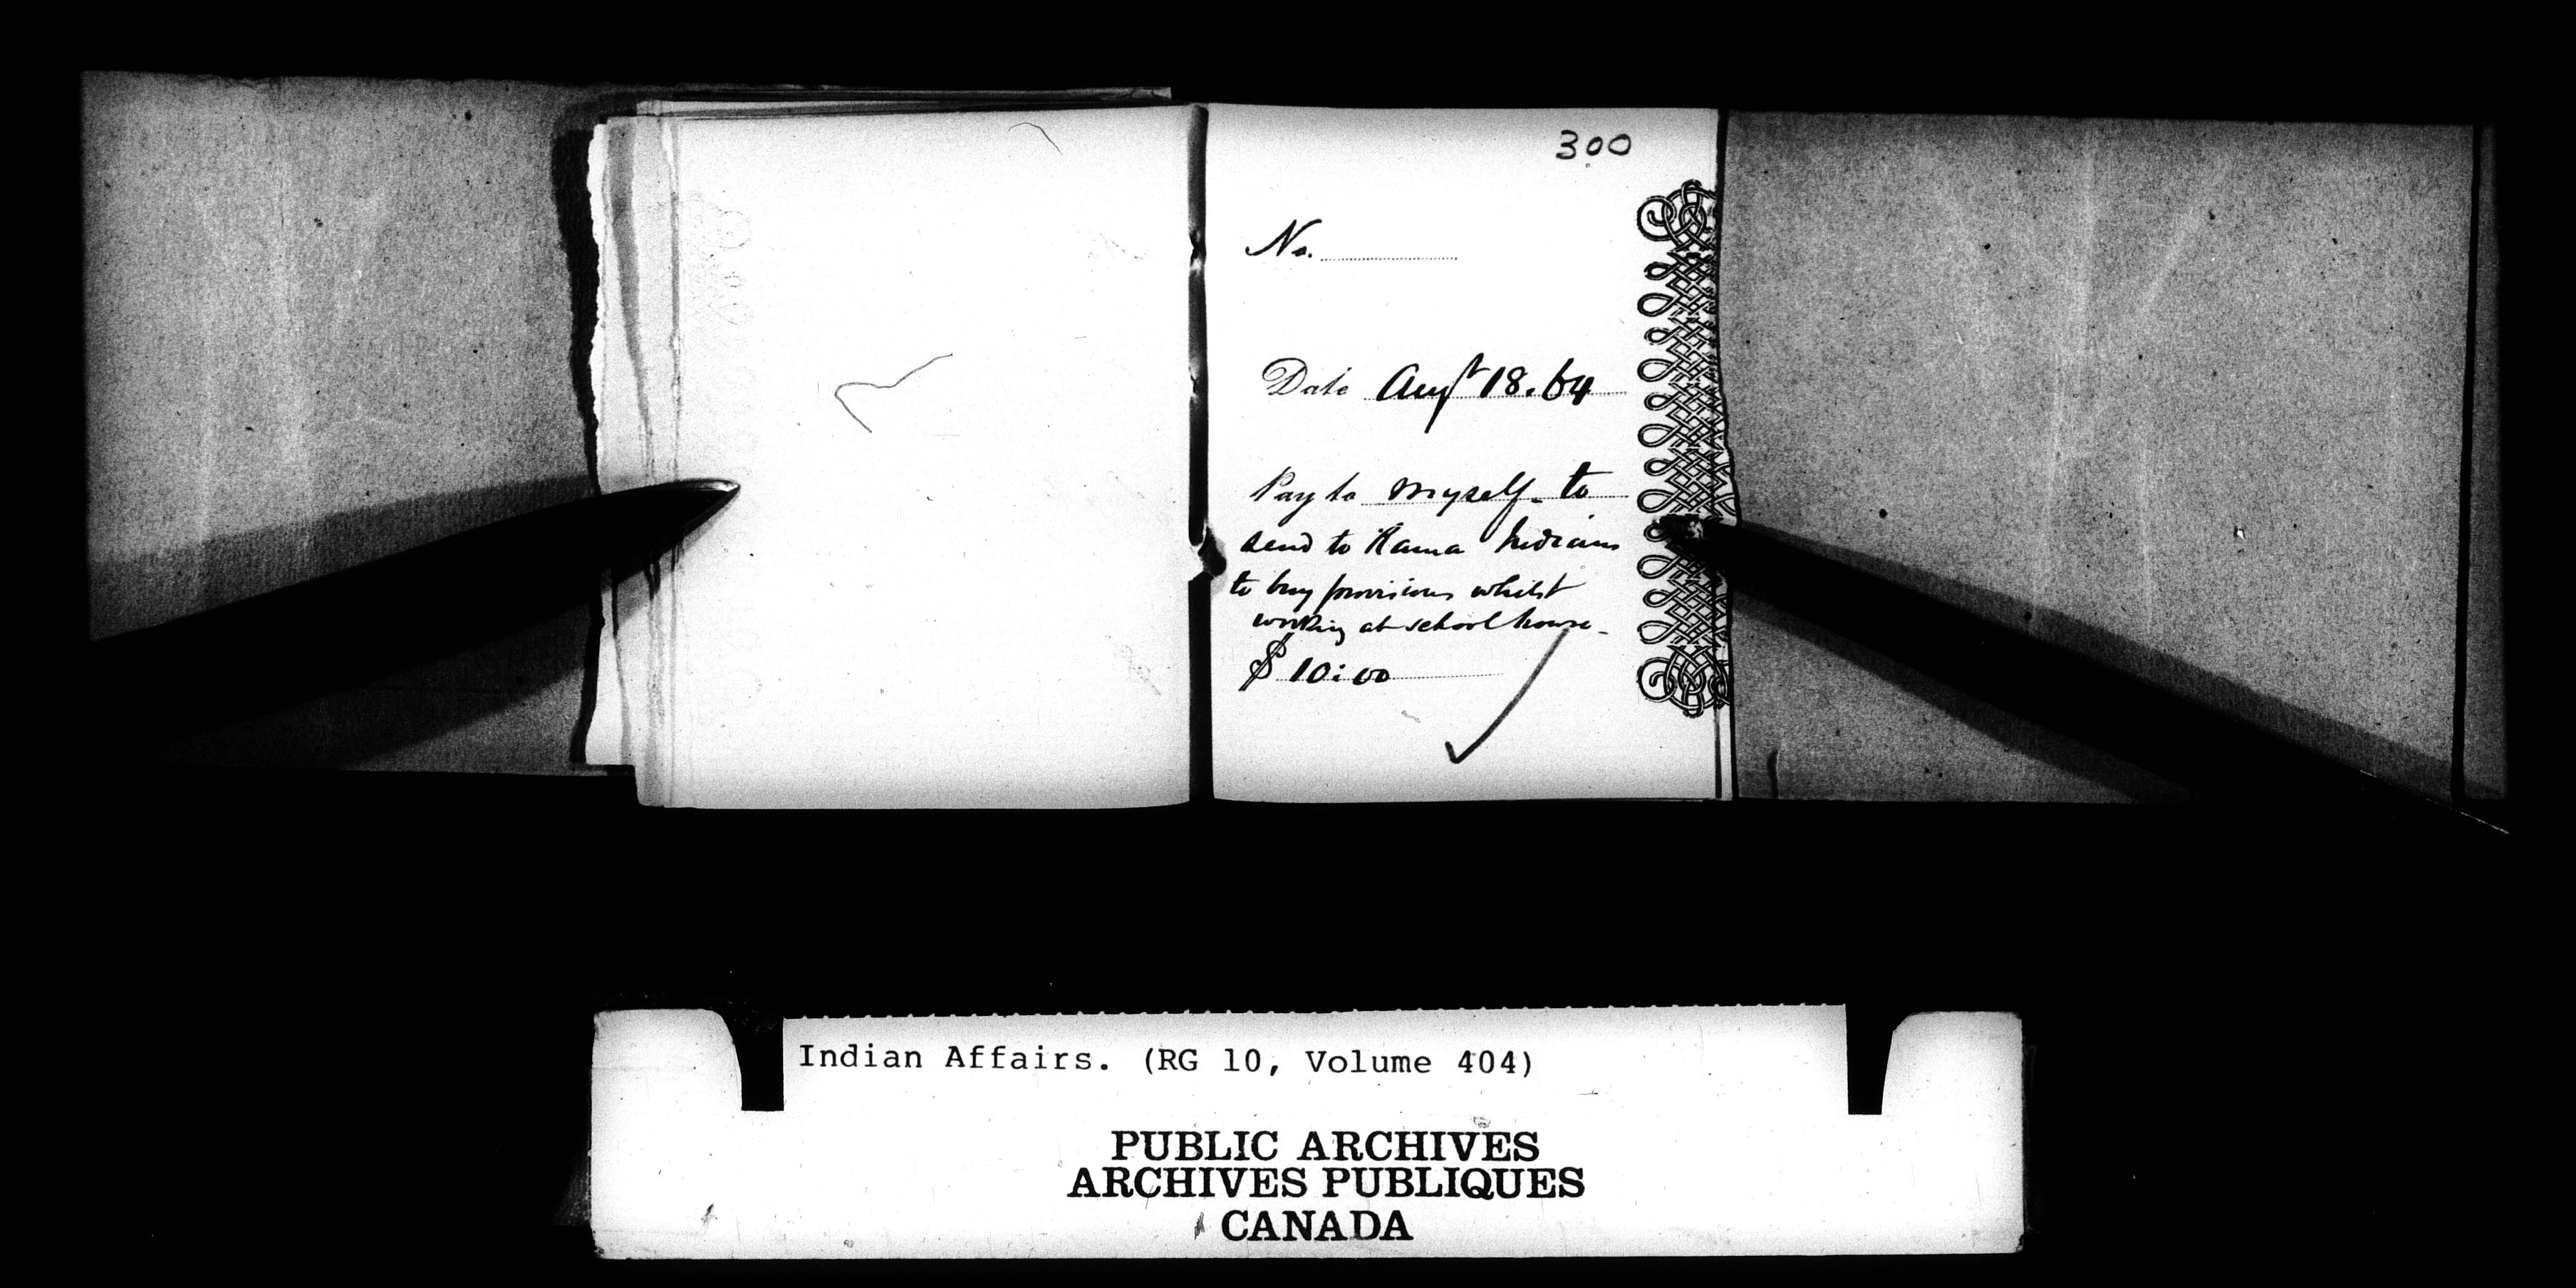 300
No.
Date Augt 18. 64
Pay to myself - to
send to Rama Indians
to buy provisions whilst
working at school house -
$ 10:00
Indian Affairs. (RG 10, Volume 404)
PUBLIC ARCHIVES
ARCHIVES PUBLIQUES
CANADA